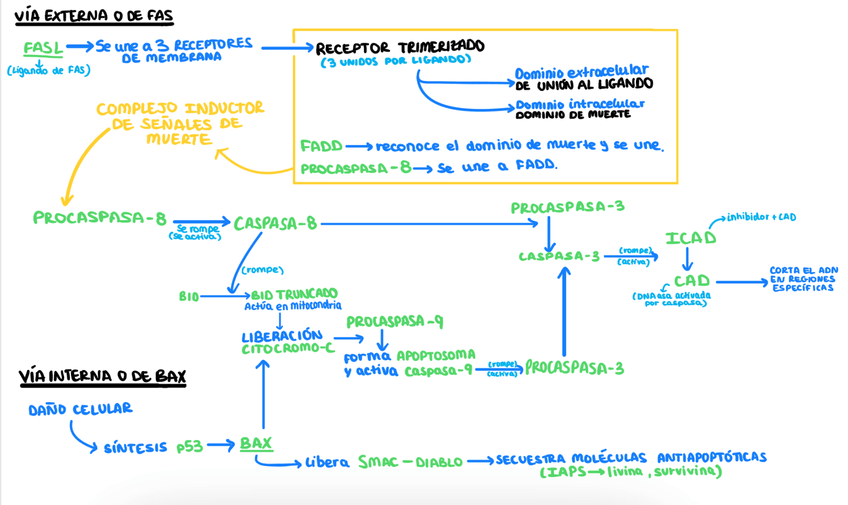 VÍA EXTERNA O DE FAS
FASL
(Ligando de FAS)
Se une a 3 RECEPTORES
DE MEMBRANA
RECEPTOR TRIMERIZADO
(3 UNIDOS POR LIGANDO)
Dominio extracelular
DE UNIÓN AL LIGANDO
Dominio intracelular
DOMINIO DE MUERTE
FADD → reconoce el dominio de muerte y se une.
PROCASPASA-8 → Se une a FADD.
COMPLEJO INDUCTOR
DE SEÑALES DE
MUERTE
PROCASPASA-8
Se rompe
(Se activa)
CASPASA-8
PROCASPASA-3
CASPASA-3
(rompe)
(activa)
ICAD
inhibidor + CAD
CAD
(DNAasa activada
por caspasa)
CORTA EL ADN
EN REGIONES
ESPECÍFICAS
(rompe)
BID → BID TRUNCADO
Actúa en mitocondria
LIBERACIÓN
CITOCROMO-C
PROCASPASA-9
forma APOPTOSOMA
y activa caspasa-9
(rompe)
(activa)
PROCASPASA-3
VÍA INTERNA O DE BAX
DAÑO CELULAR
SÍNTESIS p53 → BAX
Libera SMAC-DIABLO → SECUESTRA MOLÉCULAS ANTIAPOPTÓTICAS
(IAPS → livina, survivina)